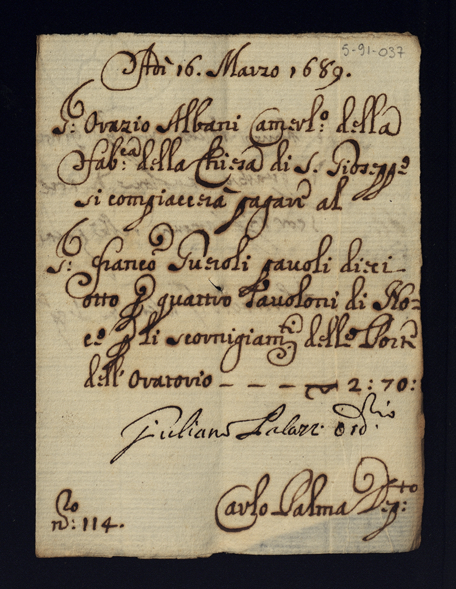 5-91-037
Adì 16. Marzo 1689.
S.r Orazio Albani Camerl.o della
Fab.ca della Chiesa di S. Gioseppe
si compiacerà pagare al
S.r Franc.o Gucioli pauoli dieci-
otto p quattro Tauoloni di No-
ce p li scornigiam.ti delle Porte
dell'Oratorio - - - - 2:70:
Giuliano Palazzi Ord.rio
Carlo Palma Dep.to
n.ro 114.